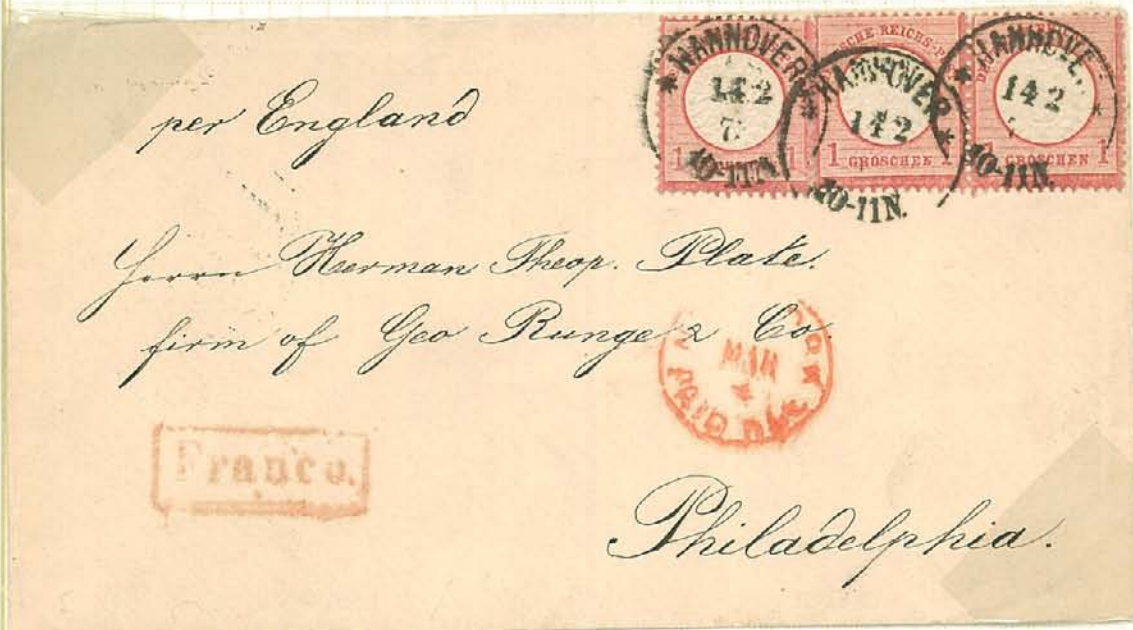 per England
HANNOVER
14 2
7
10-11N.
1 1
SCHE REICHS-P
HANNOVER
14 2
10-11N.
1 GROSCHEN 1
HANNOVE
14 2
10-11N.
GROSCHEN 1
Herrn Herman Theop. Plate.
firm of Geo Runge & Co.
MAR
PAID ALL
Franco.
Philadelphia.